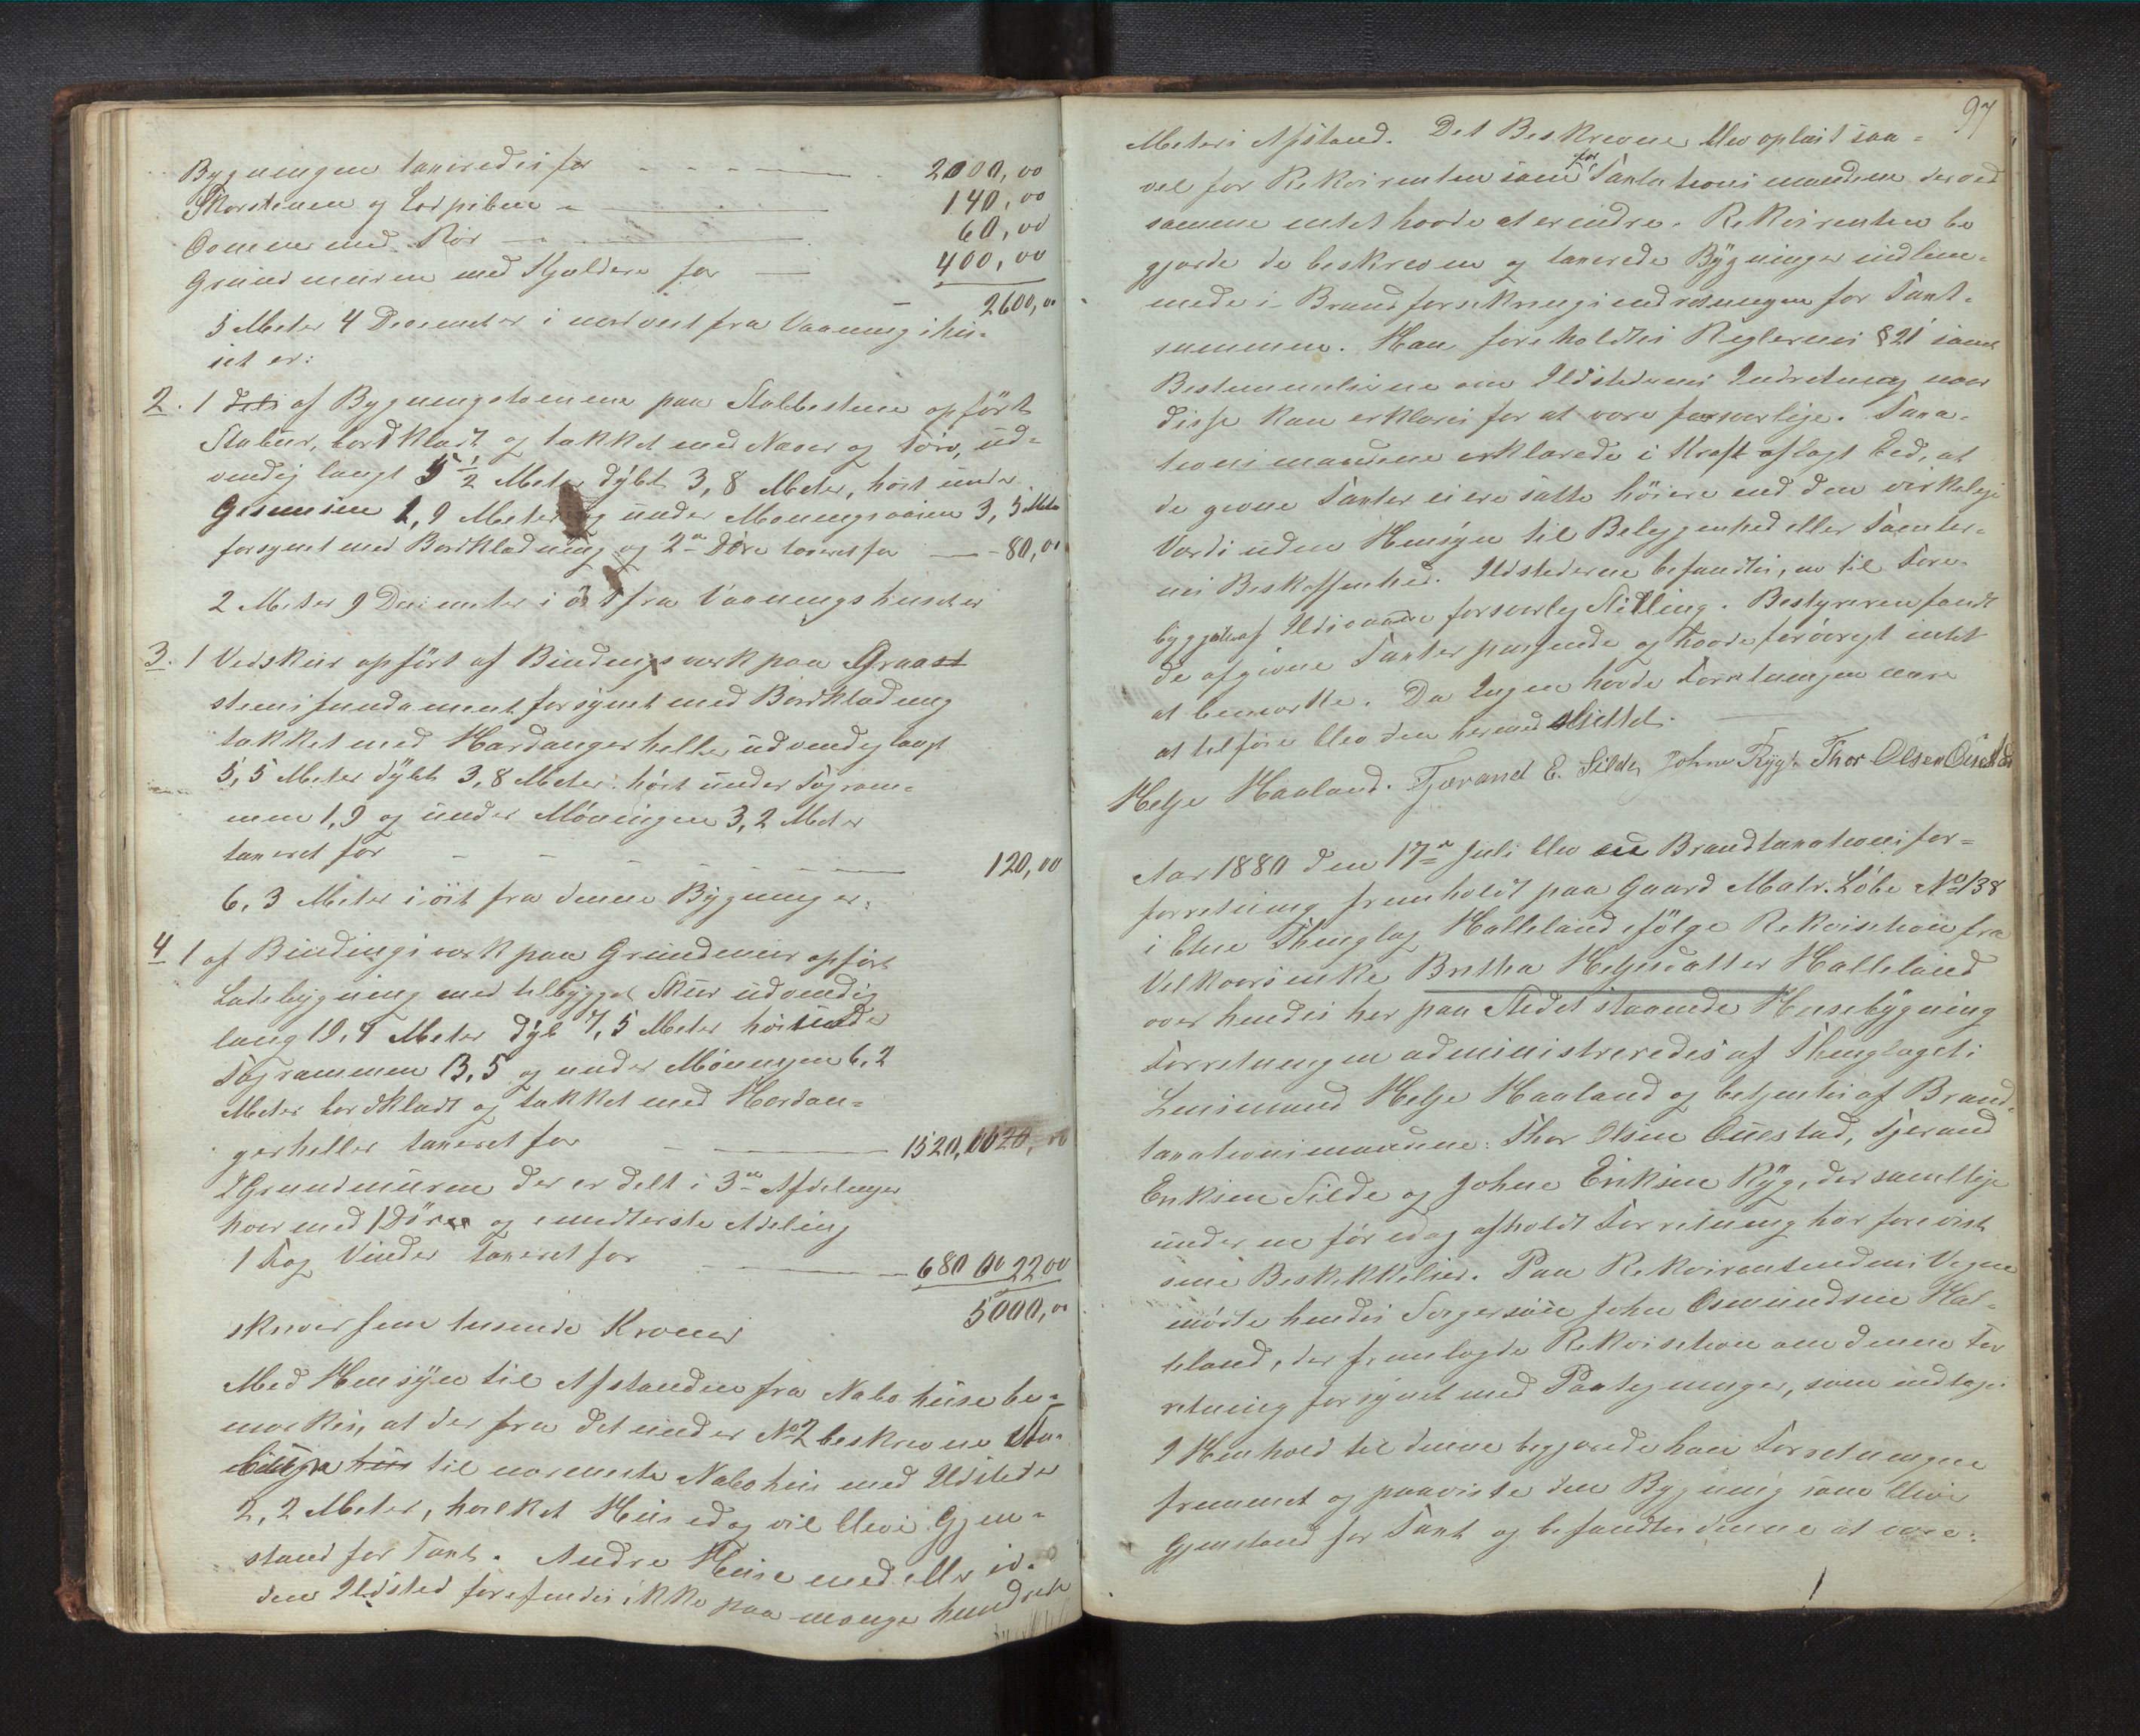 Bygningen taxeredes for - - - - 2000,00
Skorstenen og Ledpiben - 140,00
Ovnene med Rør - 60,00
Grundmuren med Kjeldere for - 400,00
- 2600,00
5 Meter 4 Decimeter i nordvest fra Vaaningshu-
set er:
2. 1 af Bygningstømmer paa Stabbestene opført
Stabur, bordklædt og tækket med Næver og Törv, ud-
vendig langt 5 1/2 Meter dybt 3,8 Meter, høit under
Gesemsen 1,9 Meter og under Møningsaasen 3,5 Meter
forsynet med Bordklædning og 2de Døre taxeret for - - 80,00
2 Meter 9 Decimeter i öst fra Vaaningshuset er
3. 1 Vedskur opført af Bindingsværk paa Graa
stensfundament forsynet med Bordklædning
tækket med Hardangerheller udvendig langt
5,5 Meter dybt 3,8 Meter høit under Tagram-
men 1,9 og under Møningen 3,2 Meter
taxeret for - - - - - 120,00
6,3 Meter i öst fra denne Bygning er:
4 1 af Bindingsværk paa Grundmur opført
Ladebygning med tilbygget Skur udvendig
lang 19,4 Meter dyb 7,5 Meter høi under
Tagrammen 3,5 og under Møningen 6,2
Meter bordklædt og tækket med Hardan-
gerheller taxeret for - 1520,00
I Grundmuren der er delt i 3de Afdelinger
hver med 1 Dör og i midterste Afdeling
1 Fag Vinder taxeret for - 680 00 2200
5000,00
skriver fem tusende Kroner
Med Hensyn til Afstanden fra Nabohuse be-
mærkes, at der fra det under No 2 beskrevne Sta-
bur til nærmeste Nabohus med Ildsted er
2,2 Meter, hvilket Hus idag vil blive Gjen-
stand for Taxt. Andre Huse med eller u-
den Ildsted forefindes ikke paa mange hundrede
97
Meters Afstand. Det Beskrevne blev oplæst saa-
vel for Rekvirenten som for Taxtationsmændene der ved
samme intet havde at erindre. Rekvirenten be
gjærde de beskrevne og taxerede Bygninger indlem-
mede i Brandforsikringsindretningen for Taxt-
summen. Han foreholdtes Reglernes § 21 samt
Bestemmelserne om Ildstedernes Indretning naar
disse kan erklæres for at være forsvarlige. Taxa-
tionsmændene erklærede i Kraft aflagt Eed, at
de givne Taxter ei ere satte høiere end den virkelige
Værdi uden Hensyn til Beliggenhed eller Tomter-
nes Beskaffenhed. Ildstederne befandtes, nu til Fore-
byggelse af Ildsvaade forsvarlig Stilling. Bestyreren fandt
de afgivne Taxter passende og havde forövrigt intet
at bemærke. Da Ingen havde Forretningen mere
at tilføre blev den hermed sluttet.
Helje Haaland. Tjærand E. Silde, Johne Ryg. Thor Olsen Øiestad
Aar 1880 den 17de Juli blev en Brandtaxationsfor-
forretning fremholdt paa Gaard Matr. Löbe No 138
i Etne Thinglag Halleland ifölge Rekvisition fra
Velkaarsenke Britha Heljesdatter Halleland
over hendes her paa Stedet staaende Husebygning
Forretningen administreredes af Thinglagets
Lensmand Helje Haaland og betjentes af Brand-
taxationsmændene: Thor Olsen Øiestad, Tjerand
Eriksen Silde og Johne Eriksen Ryg, der samtlige
under en för idag afholdt Forretning har forevist
sine Beskikkelser. Paa Rekvirentindens Vegne
mødte hendes Svigersøn John Osmundsen Hal-
leland, der fremlagde Rekvisition om denne For
retning forsynet med Paategninger, som indtages
I Henhold til denne begjærede han Forretningen
fremmet og paaviste den Bygning som bliver
Gjenstand for Taxt og befandtes denne at være:
1